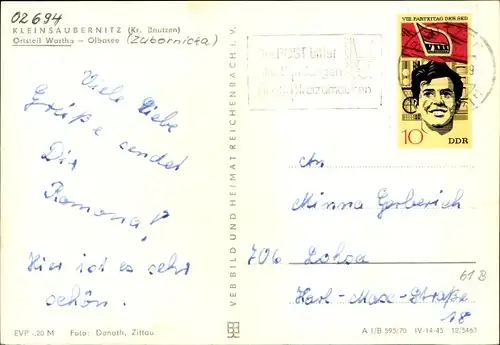 02694
KLEINSAUBERNITZ (Kr. Bautzen)
Ortsteil Wartha - Olbasee (Zubornicka)
Viele liebe
Grüße sendet
Dir
Ramona!
Hier ist es sehr
schön.
EVP -.20 M Foto: Donath, Zittau
VEB BILD UND HEIMAT REICHENBACH i. V.
Die POST bittet
die Sendungen
freizumachen
VIII. PARTEITAG DER SED
10 DDR
An
Minna Gerberich
Lohsa
61 B
Karl-Marx-Straße
18
A I/B 595/70 IV-14-45 12/5463